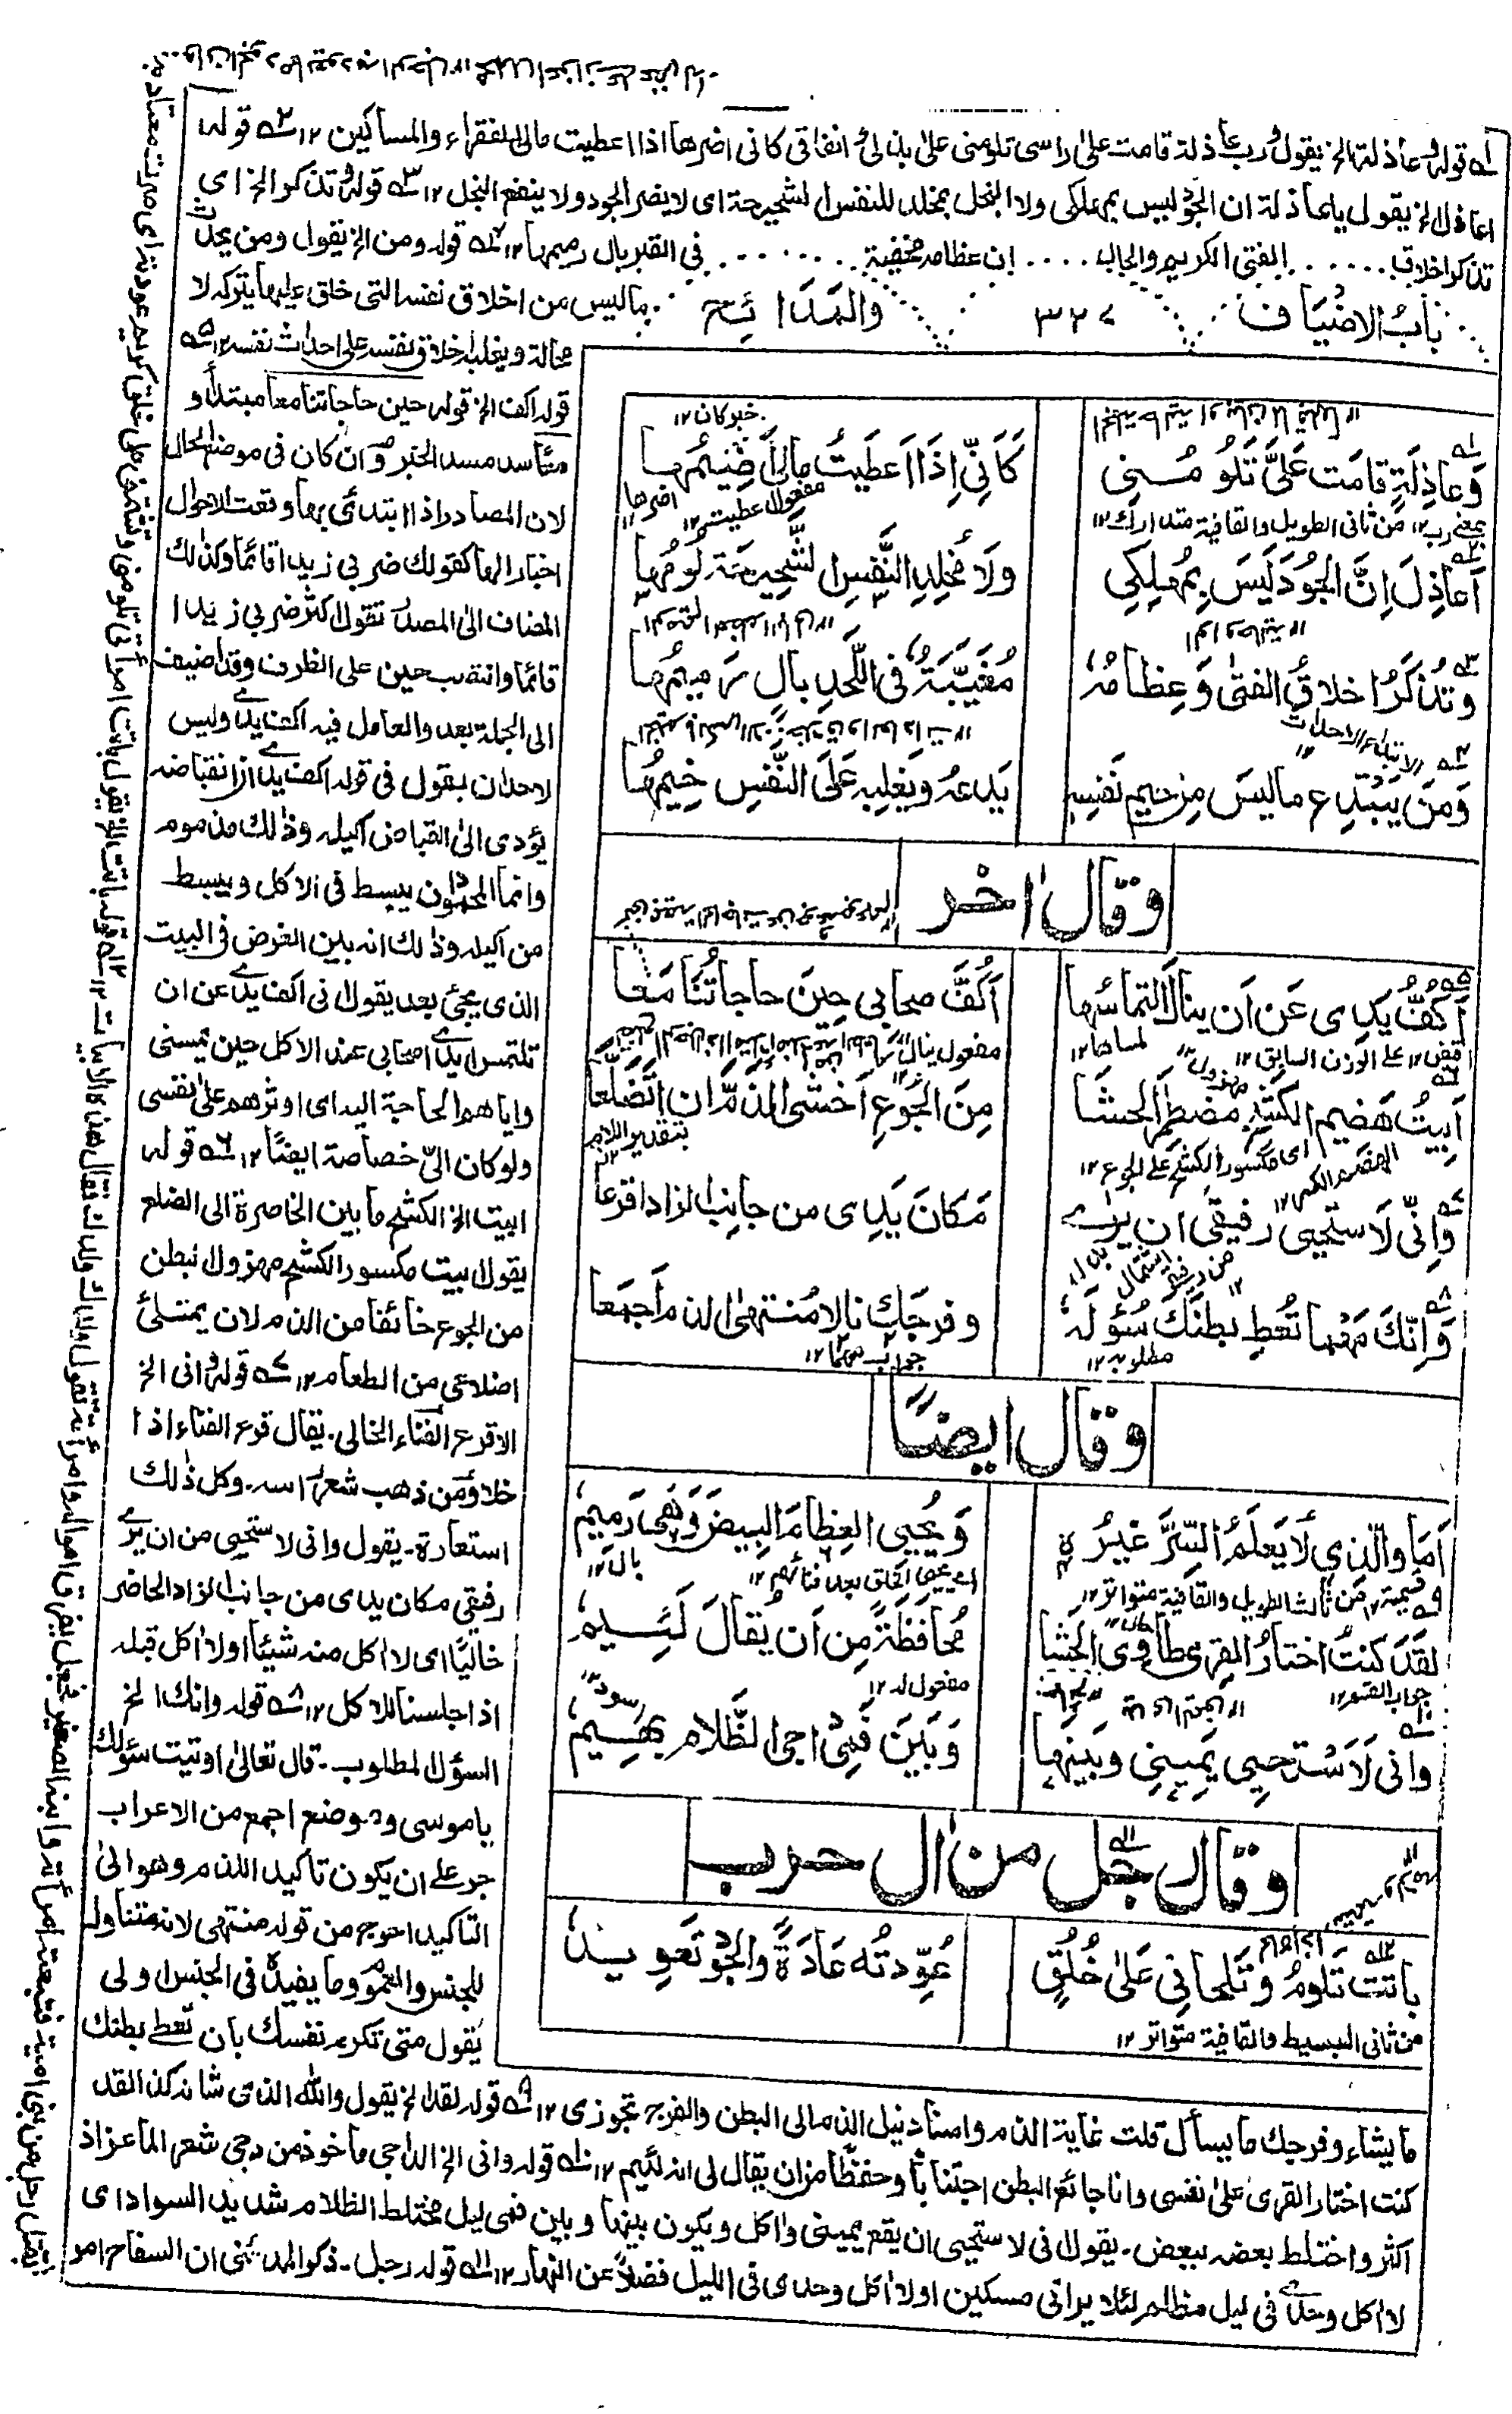 ۱؎ قوله وعاذلة الخ يقول ورب عاذلة قامت على راسى تلومنى على بذلى انفاقى كانى اضرها اذا اعطيت مالى الفقراء والمساكين ۱۲ ۲؎ قوله
اعاذل الخ يقول يا عاذلة ان الجود ليس بمهلكى ولا البخل بمخلد للنفس الشحيحة اى لا يضر الجود ولا ينفع البخل ۱۲ ۳؎ قوله وتذكر الخ اى
تذكر اخلاق الفتى الكريم والحال ان عظامه مخفية فى القبر بال رميمها ۱۲ ۴؎ قوله ومن الخ يقول ومن يحدث
باب الاضياف ۳۲۷ والمدائح
ما ليس من اخلاق نفسه التى خلق عليها يتركه لا
محالة ويغلبه اخلاق نفسه على احداث نفسه ۱۲ ۵؎
قوله اكف الخ قوله حين حاجاتنا معا مبتدأ و
معا سد مسد الخبر وان كان فى موضع الحال
لان المصادر اذا ابتدئ بها وقعت الاحوال
اخبارا لها كقولك ضربى زيدا قائما وكذلك
المضاف الى المصدر تقول اكثر ضربى زيدا
قائما وانتصب حين على الظرف وقد اضيف
الى الجملة بعد والعامل فيه اكف يدى وليس
لاحد ان يقول فى قوله اكف يدى ان انقباضه
يؤدى الى انقباض اكيله وذلك مذموم
وانما المحمود ان يبسط فى الاكل ويبسط
من اكيله وذلك انه بين الغرض فى البيت
الذى يجئ بعد يقول انى اكف يدى عن ان
تلتمس ايدى اصحابى عند الاكل حين تمسنى
واياهم الحاجة اليه اى اوثرهم على نفسى
ولو كان الىّ خصاصة ايضًا ۱۲ ۶؎ قوله
ابيت الخ الكشح ما بين الخاصرة الى الضلع
يقول ابيت مكسور الكشح مهزول البطن
من الجوع خائفا من الذم لان يمتلئ
اضلاعى من الطعام ۱۲ ۷؎ قوله وانى الخ
الاقرع الفناء الخالى. يقال قرع الفناء اذا
خلا ومن ذهب شعر راسه. وكل ذلك
استعارة. يقول وانى لاستحيى من ان يرى
رفيقى مكان يدى من جانب الزاد الحاضر
خاليًا اى لا اكل منه شيئا او لا اكل قبله
اذا جلسنا للاكل ۱۲ ۸؎ قوله وانك الخ
السؤل المطلوب. قال تعالى اوتيت سؤلك
يا موسى وموضع اجمع من الاعراب
جر على ان يكون تاكيد الذم وهو الى
التاكيد احوج من قوله منتهى لانه متناول
للجنس والعموم وما يفيده فى الجنس اولى
يقول متى تكرم نفسك بان تعط بطنك
وَعَاذِلَةٍ قَامَت عَلَىَّ تَلُومُنِى
كَأَنِّى إِذَا اَعطَيتُ مَالِى اَضِيمُهَا
خبر كان ۱۲
مفعول اعطيت ۱۲
اضرها ۱۲
بمعنى رب ۱۲ من ثانى الطويل والقافية متدارك ۱۲
اَعَاذِلَ اِنَّ الجُودَ لَيسَ بِمُهلِكِى
وَلَا مُخلِدِ النَّفسِ الشَّحِيحَةِ لُومُهَا
وَتُذكَرُ اخلاقُ الفتى وَعِظَامُهُ
مُغَيَّبَةٌ فى اللَّحدِ بَالٍ رَمِيمُهَا
الابتداع الاحداث ۱۲
وَمَن يَبتَدِع مَا لَيسَ مِن خِيمِ نَفسِهِ
يَدَعهُ وَيَغلِبهُ عَلَى النَّفسِ خِيمُهَا
وقال اخر
اَكُفُّ يَدِى عَن اَن يَنَالَ التِمَاسُهَا
اَكُفَّ صِحَابِى حِينَ حَاجَاتُنَا مَعَا
اقبض ۱۲ على الوزن السابق ۱۲ لمساها ۱۲
مفعول ينال
اَبِيتُ هَضِيمَ الكَشحِ مُضطَمِرَ الحَشَا
مِنَ الجُوعِ اَخشَى الذَّمَّ اَن اَتَضَلَّعَا
مهزول ۱۲
الهضم الكسر ۱۲ اى مكسور الكشح على الجوع ۱۲
بتقدير اللام ۱۲
وَاِنِّى لَاَستَحيِى رَفِيقِى اَن يَرَى
مَكَانَ يَدِى مِن جَانِبِ الزَّادِ اَقرَعَا
من رفيقى اشتمال ۱۲
بدل
وَاِنَّكَ مَهمَا تُعطِ بَطنَكَ سُؤلَهُ
وفرجَكَ نالا مُنتَهى الذم اَجمَعا
مطلوبه ۱۲
جواب مهما ۱۲
وقال ايضًا
اَمَا وَالَّذِى لَا يَعلَمُ السِّرَّ غَيرُهُ
وَيُحيِى العِظَامَ البِيضَ وَهىَ رَمِيمُ
قسمية ۱۲ من ثالث الطويل والقافية متواتر ۱۲
اى يحيى الخلق بعد فنائهم ۱۲
بال ۱۲
لَقَد كُنتُ اختَارُ القِرَى طَاوِىَ الحَشَا
مُحَافَظَةً مِن اَن يُقَالَ لَئِيمُ
جواب القسم ۱۲
حال ۱۲
مفعول له ۱۲
اسود ۱۲
وَاِنِّى لَاَستَحيِى يَمِينِى وَبَينَهَا
وَبَينَ فَمِى داجى الظَّلَامِ بَهِيمُ
وقال رجل من ال حرب
بَاتَت تَلُومُ وَتَلحَانِى عَلَى خُلُقٍ
عُوِّدتُهُ عَادَةً وَالجُودُ تَعوِيدُ
من ثانى البسيط والقافية متواتر ۱۲
ما يشاء وفرجك ما يسأل قلت غاية الذم واسناد نيل الذم الى البطن والفرج تجوزى ۱۲ ۹؎ قوله لقد الخ يقول والله الذى شانه كذا لقد
كنت اختار القرى على نفسى وانا جائع البطن اجتنابا وحفظا من ان يقال لى انه لئيم ۱۲ ۱۰؎ قوله وانى الخ الداجى ماخوذ من دجى شعر الماعز اذا
اكثر واختلط بعضه ببعض. يقول انى لاستحيى ان يقع يمينى واكل ويكون بينها وبين فمى ليل مختلط الظلام شديد السواد اى
لا اكل وحدى فى ليل مظلم لئلا يرانى مسكين او لا اكل وحدى فى الليل فضلًا عن النهار ۱۲ ۱۱؎ قوله رجل. ذكر المدائنى ان السفاح امر
بقتل رجل من بنى امية فتبعته امرأته وابنه الصغير فجعل يفرق امواله وامرأته تقول ولدك ولدك فقال هذه الابيات ۱۲ ۱۲؎ قوله باتت الخ يقول باتت امرأتى تلومنى وتشتمنى على خلق كريم عودته اى صرت معتاده